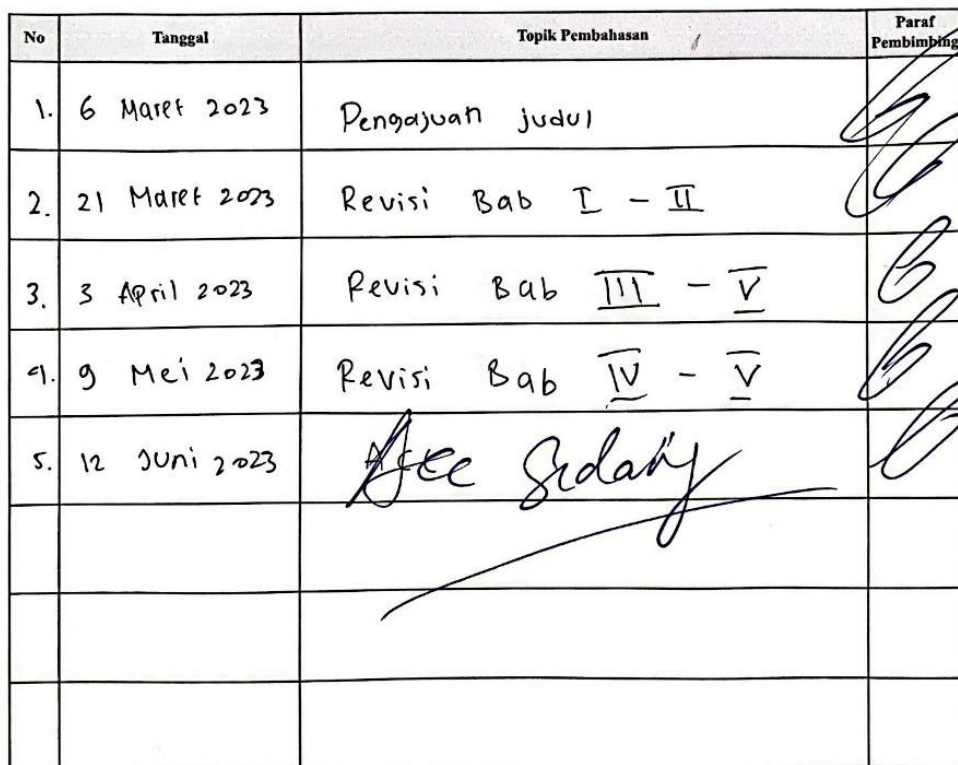 No Tanggal Topik Pembahasan Paraf Pembimbing
1. 6 Maret 2023 Pengajuan judul
2. 21 Maret 2023 Revisi Bab I - II
3. 3 April 2023 Revisi Bab III - V
4. 9 Mei 2023 Revisi Bab IV - V
5. 12 Juni 2023 Acc Sidang